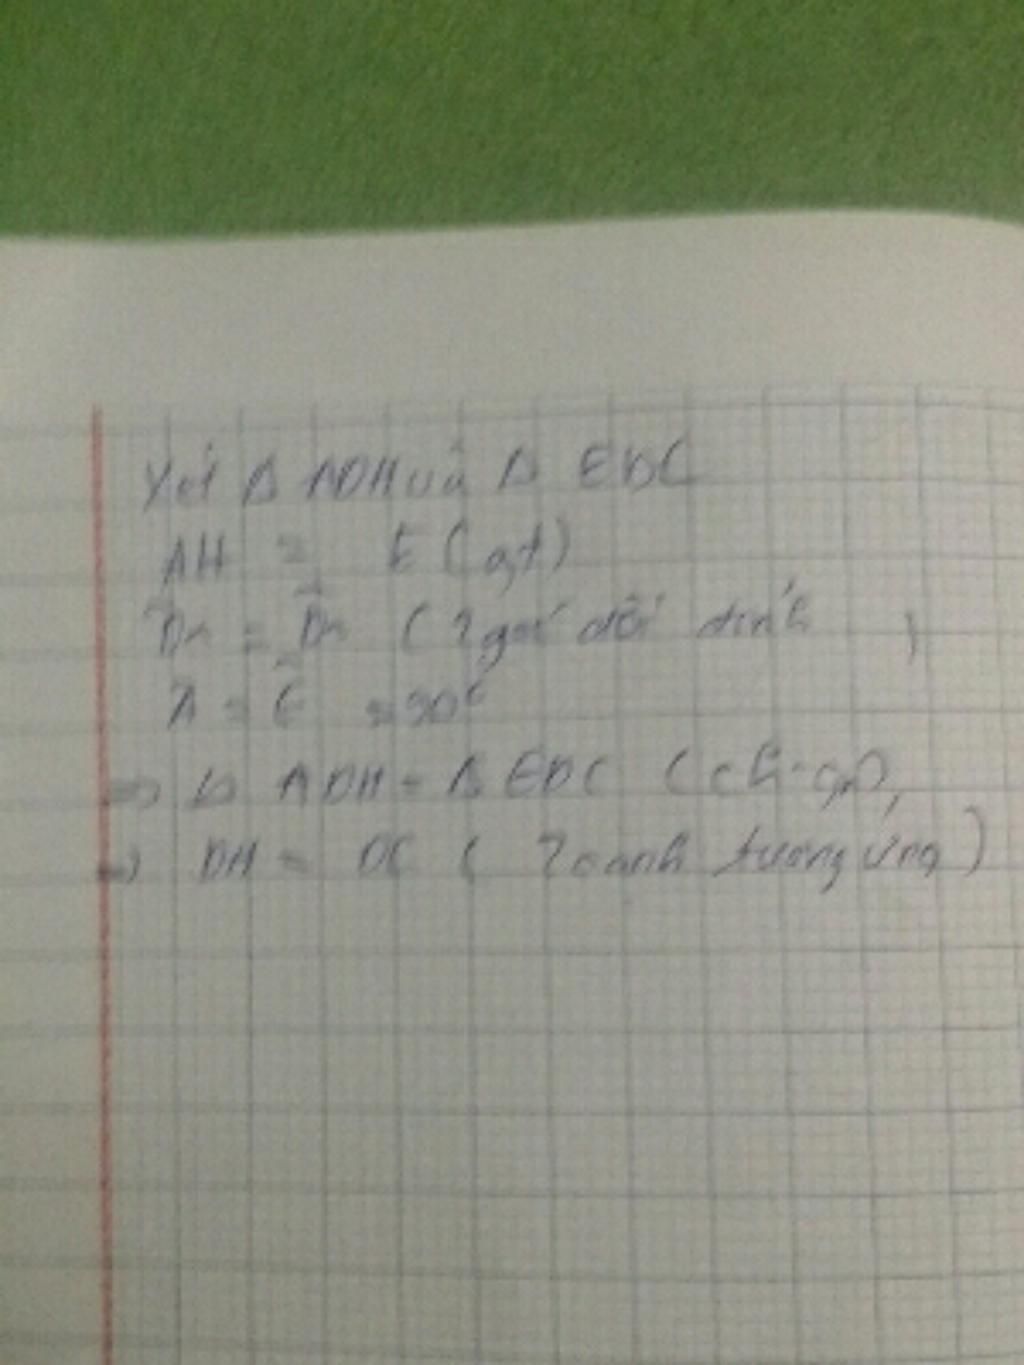 Xét Δ ADH và Δ EDC
AH = E (gt)
D̂₁ = D̂₂ (2 góc đối đỉnh )
Â = Ê = 90°
=> Δ ADH = Δ EDC (
=> DH = DC ( 2 cạnh tương ứng )